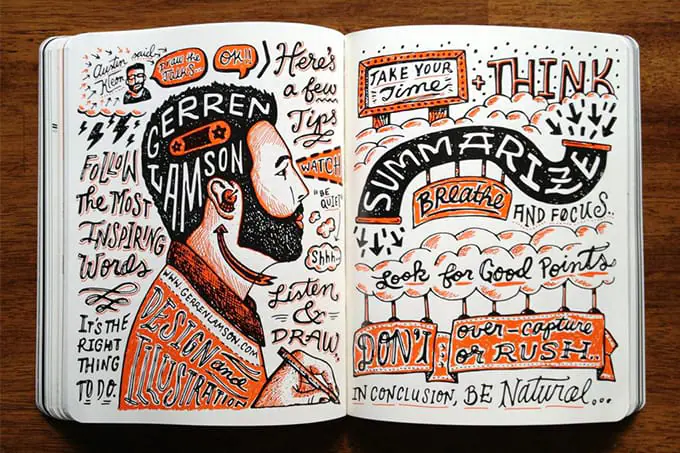 Austin said
Kleon
Draw the
Talks..
OK!!
Here's
a few
Tips
GERREN
LAMSON
WATCH
"BE
QUIET"
Shhh..
FOLLOW
The MOST
INSPIRING
Words
IT'S THE
RIGHT
THING
TO DO.
WWW.GERRENLAMSON.COM
DESIGN and
ILLUSTRATION
Listen
&
DRAW.
TAKE YOUR
Time
+ THINK
SUMMARIZE
Breathe
AND FOCUS..
Look for Good Points
DON'T
over-capture
or RUSH..
IN CONCLUSION, BE Natural...